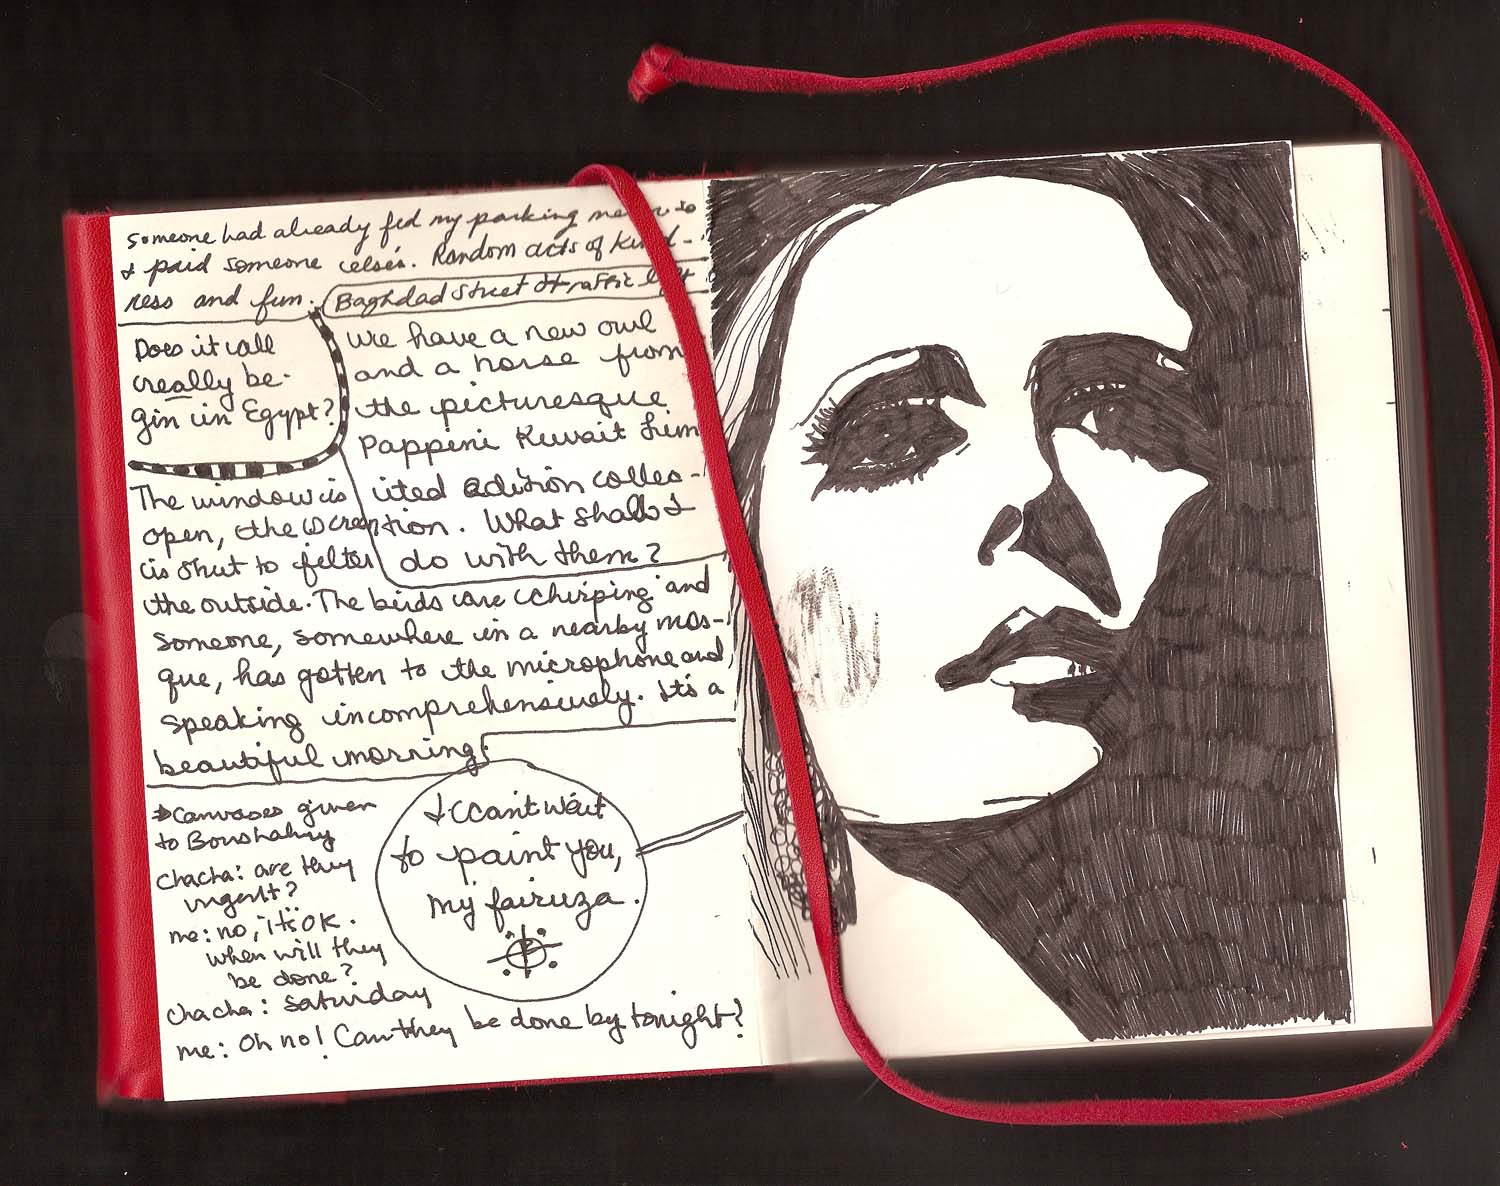 someone had already fed my parking meter so
I paid someone else's. Random acts of kind-
ness and fun.
Baghdad Street traffic light
Does it all
really be-
gin in Egypt?
We have a new owl
and a horse from
the picturesque
Pappeni Kuwait Lim
ited edition collec-
tion. What shall I
do with them?
The window is
open, the screen
is shut to filter
the outside. The birds are chirping and
someone, somewhere in a nearby mos-
que, has gotten to the microphone and,
speaking incomprehensively. It's a
beautiful morning.
Canvases given
to Boushahry
Chacha: are they
urgent?
me: no, it's OK.
when will they
be done?
Chacha: Saturday
me: Oh no! Can they be done by tonight?
I can't wait
to paint you,
my fairuza.